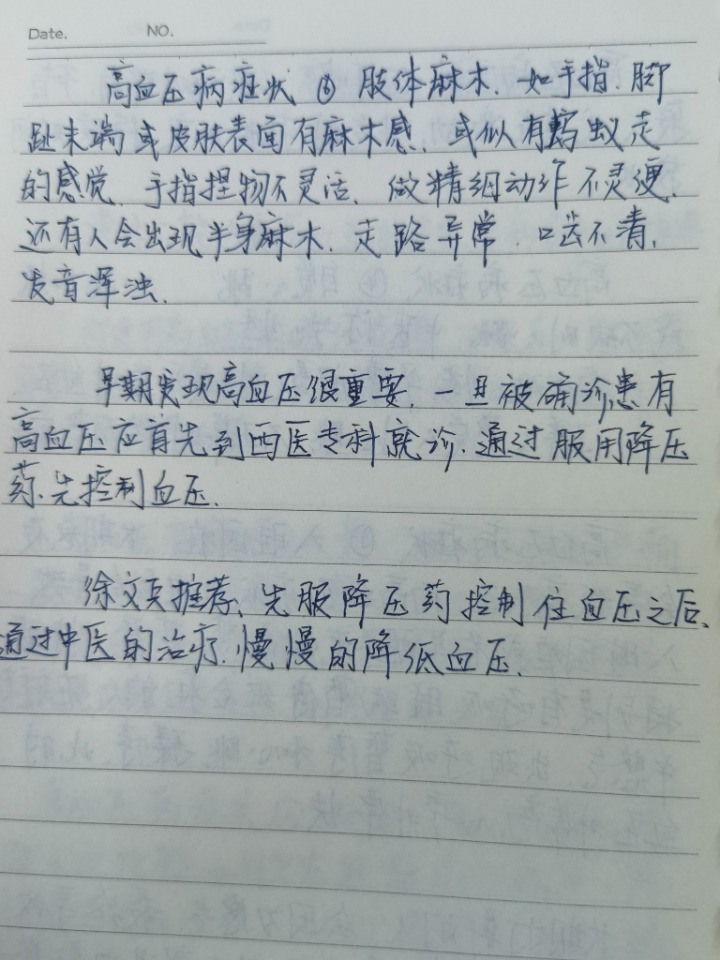 Date. NO.
高血压病症状 ⑥ 肢体麻木. 如手指. 脚
趾末端或皮肤表面有麻木感. 或似有蚂蚁走
的感觉. 手指捏物不灵活. 做精细动作不灵便.
还有人会出现半身麻木. 走路异常. 口齿不清,
发音浑浊.
早期发现高血压很重要. 一旦被确诊患有
高血压应首先到西医专科就诊. 通过服用降压
药. 先控制血压.
推荐、先服降压药控制住血压之后、
通过中医的治疗. 慢慢的降低血压.